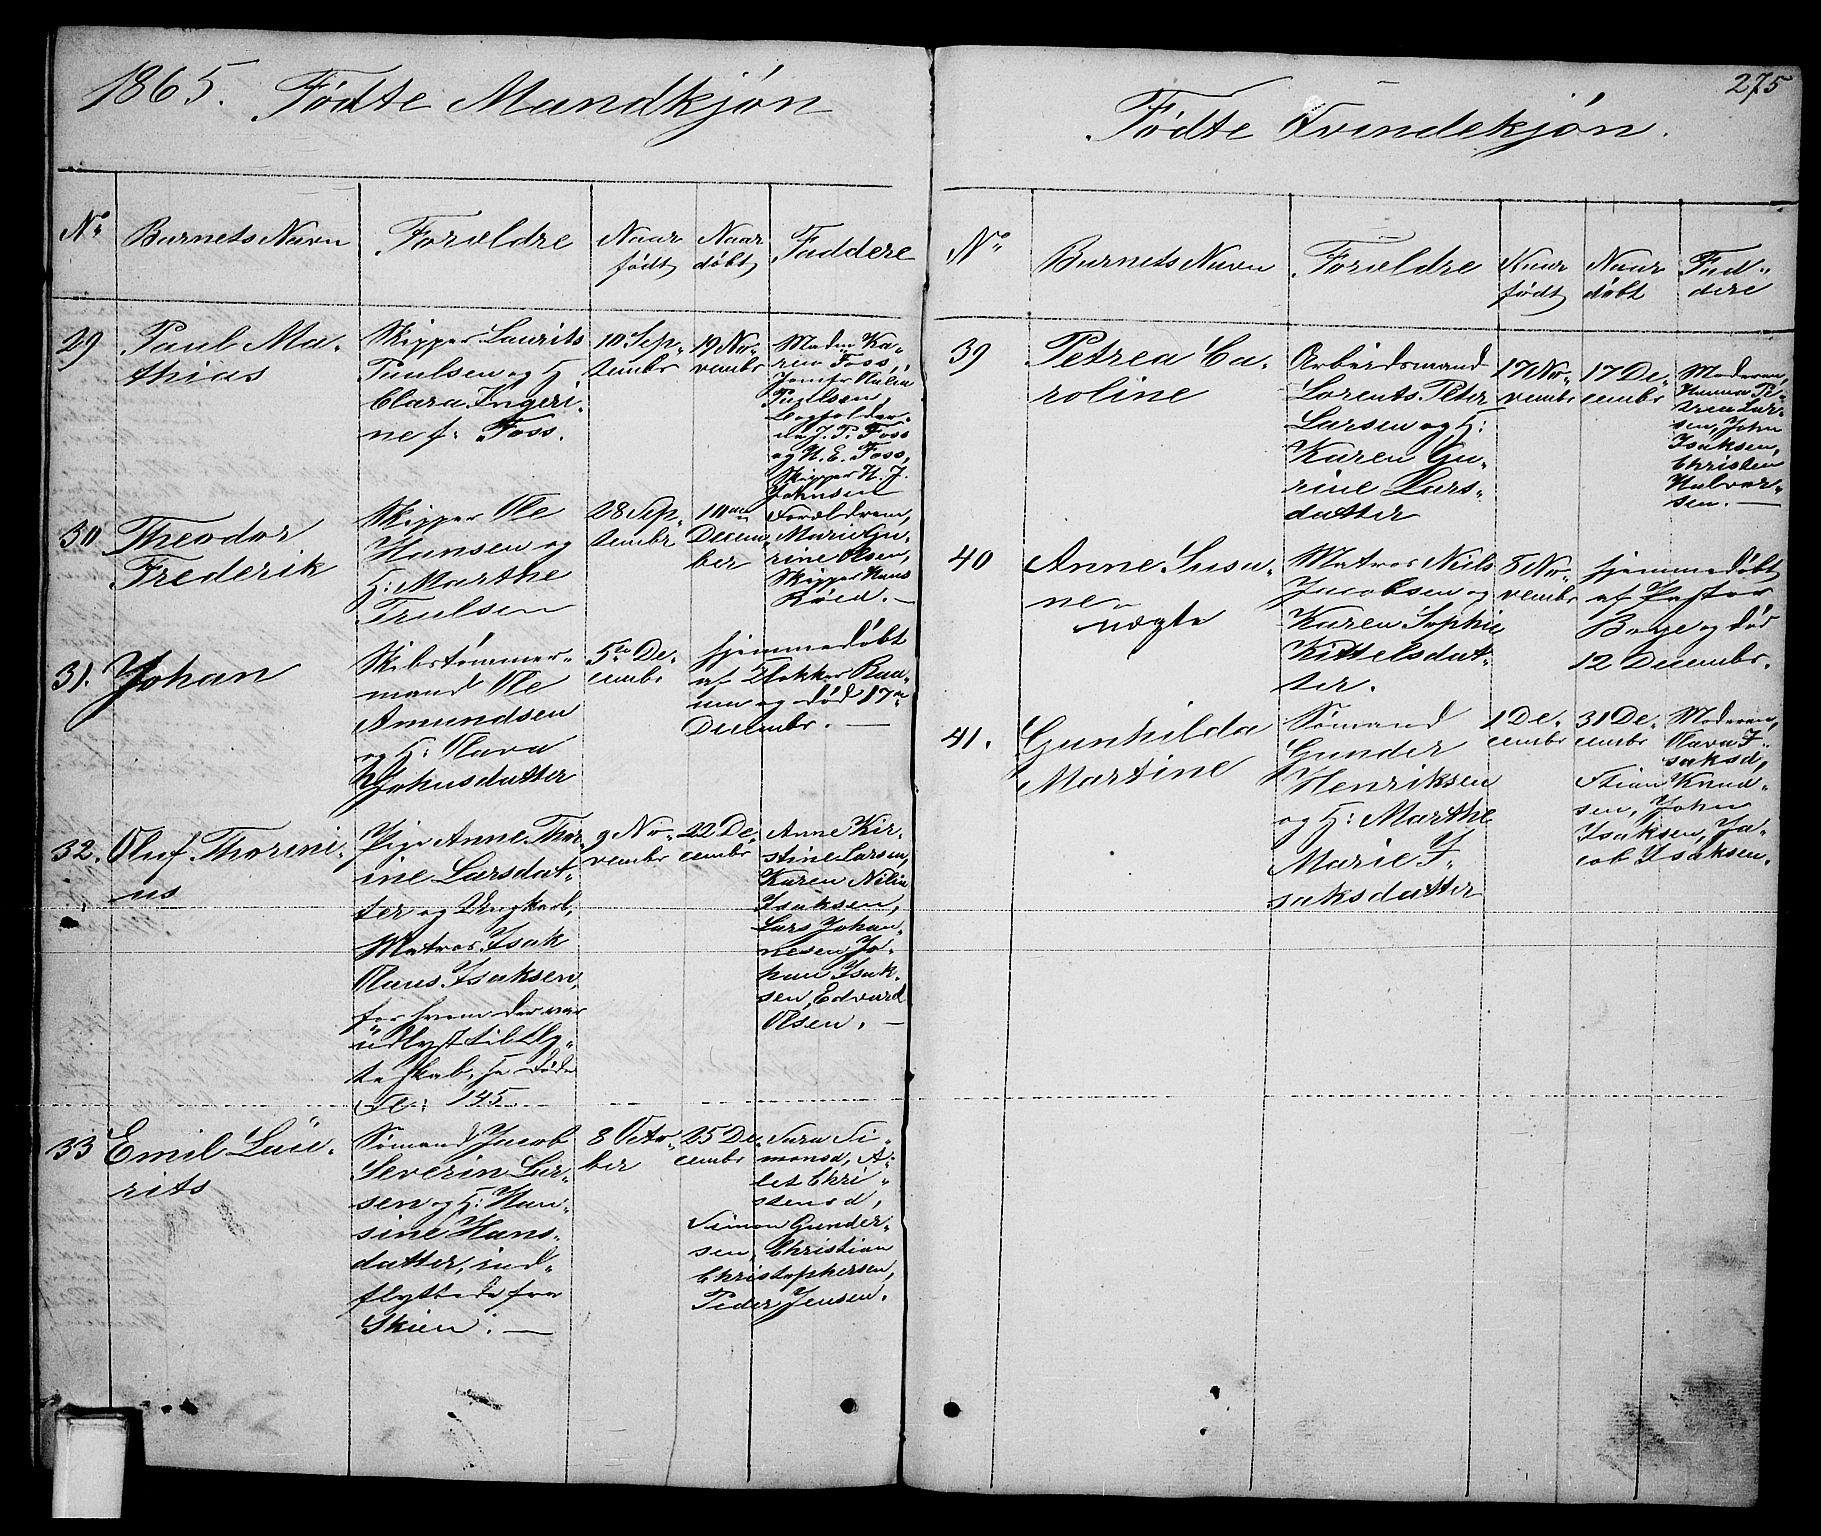 1865. Fødte Mandkjøn
No
Barnets Navn
Forældre
Naar
født
Naar
døbt
Faddere
29
Paul Ma-
thias
Skipper Laurits
Paulsen og H:
Clara Ingeri-
ne f: Foss.
10 Sep-
tembr
19 No-
vembr
Madm Ka-
ren Foss,
Jomfr Helin
Paulsen,
J. P. Foss
og N. E. Foss,
Skipper N. J.
Johnsen
30
Theodor
Frederik
Skipper Ole
Hansen og
H: Marthe
Trulsen
28 Sep-
tembr
10de
Decem-
ber
Forældrene,
Marie Gu-
rine Olsen,
Skipper Hans
Röed. —
31.
Johan
Skibstömmer-
mand Ole
Amundsen
og H: Olava
Johnsdatter
5te De-
cembr
hjemmedøbt
af Klokker Raa-
um og død 17de
Decembr. —
32.
Oluf Thorini-
us
Pige Anne Thor-
ine Larsdat-
ter og Ungkarl,
Matros Isak
Olaus Isaksen,
for hvem der var
udlyst til Æg-
teskab, se døde
Fol: 145.
9 No-
vembr
22 De-
cembr
Anne Kir-
stine Larsen,
Karen Nilia
Isaksen,
Lars Johan-
nesen, Jo-
han Isak-
sen, Edvard
Olsen. —
33
Emil Lau-
rits
Sømand Jacob
Severin Lar-
sen og H: Han-
sine Hans-
datter, ind-
flyttede fra
Skien. —
8 Octo-
ber
25 De-
cembr
Sara Si-
monsd, A-
let Chri-
stensd,
Simon Gunder-
sen, Christian
Christophersen,
Peder Jensen.
275
Fødte Qvindekjøn.
No
Barnets Navn
Forældre
Naar
født
Naar
døbt
Fad-
dere
39
Petrea Ca-
roline
Arbeidsmand
Lorents Peter
Larsen og H:
Karen Gu-
rine Lars-
datter
17 No-
vembr
17 De-
cembr
Moderen,
Hanna Pe-
trea Lar-
sen, John
Isaksen,
Christen
Halvor-
sen. —
40
Anne Susa-
ne
uægte
Matros Niels
Jacobsen og
Karen Sophie
Kittelsdat-
ter.
8 No-
vembr
hjemmedøbt
af Pastor
Boye og død
12 Decembr.
41.
Gunhilda
Martine
Sømand
Gunder
Henriksen
og H: Marthe
Marie I-
saksdatter
1 De-
cembr
31 De-
cembr
Moderen,
Olava I-
saksd,
Stian Knud-
sen, John
Isaksen, Ja-
cob Isaksen.